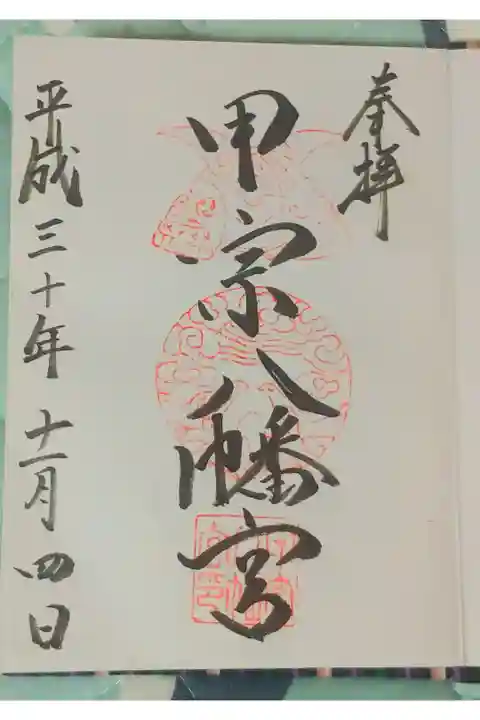 奉拝
甲宗八幡宮
平成三十年十一月四日